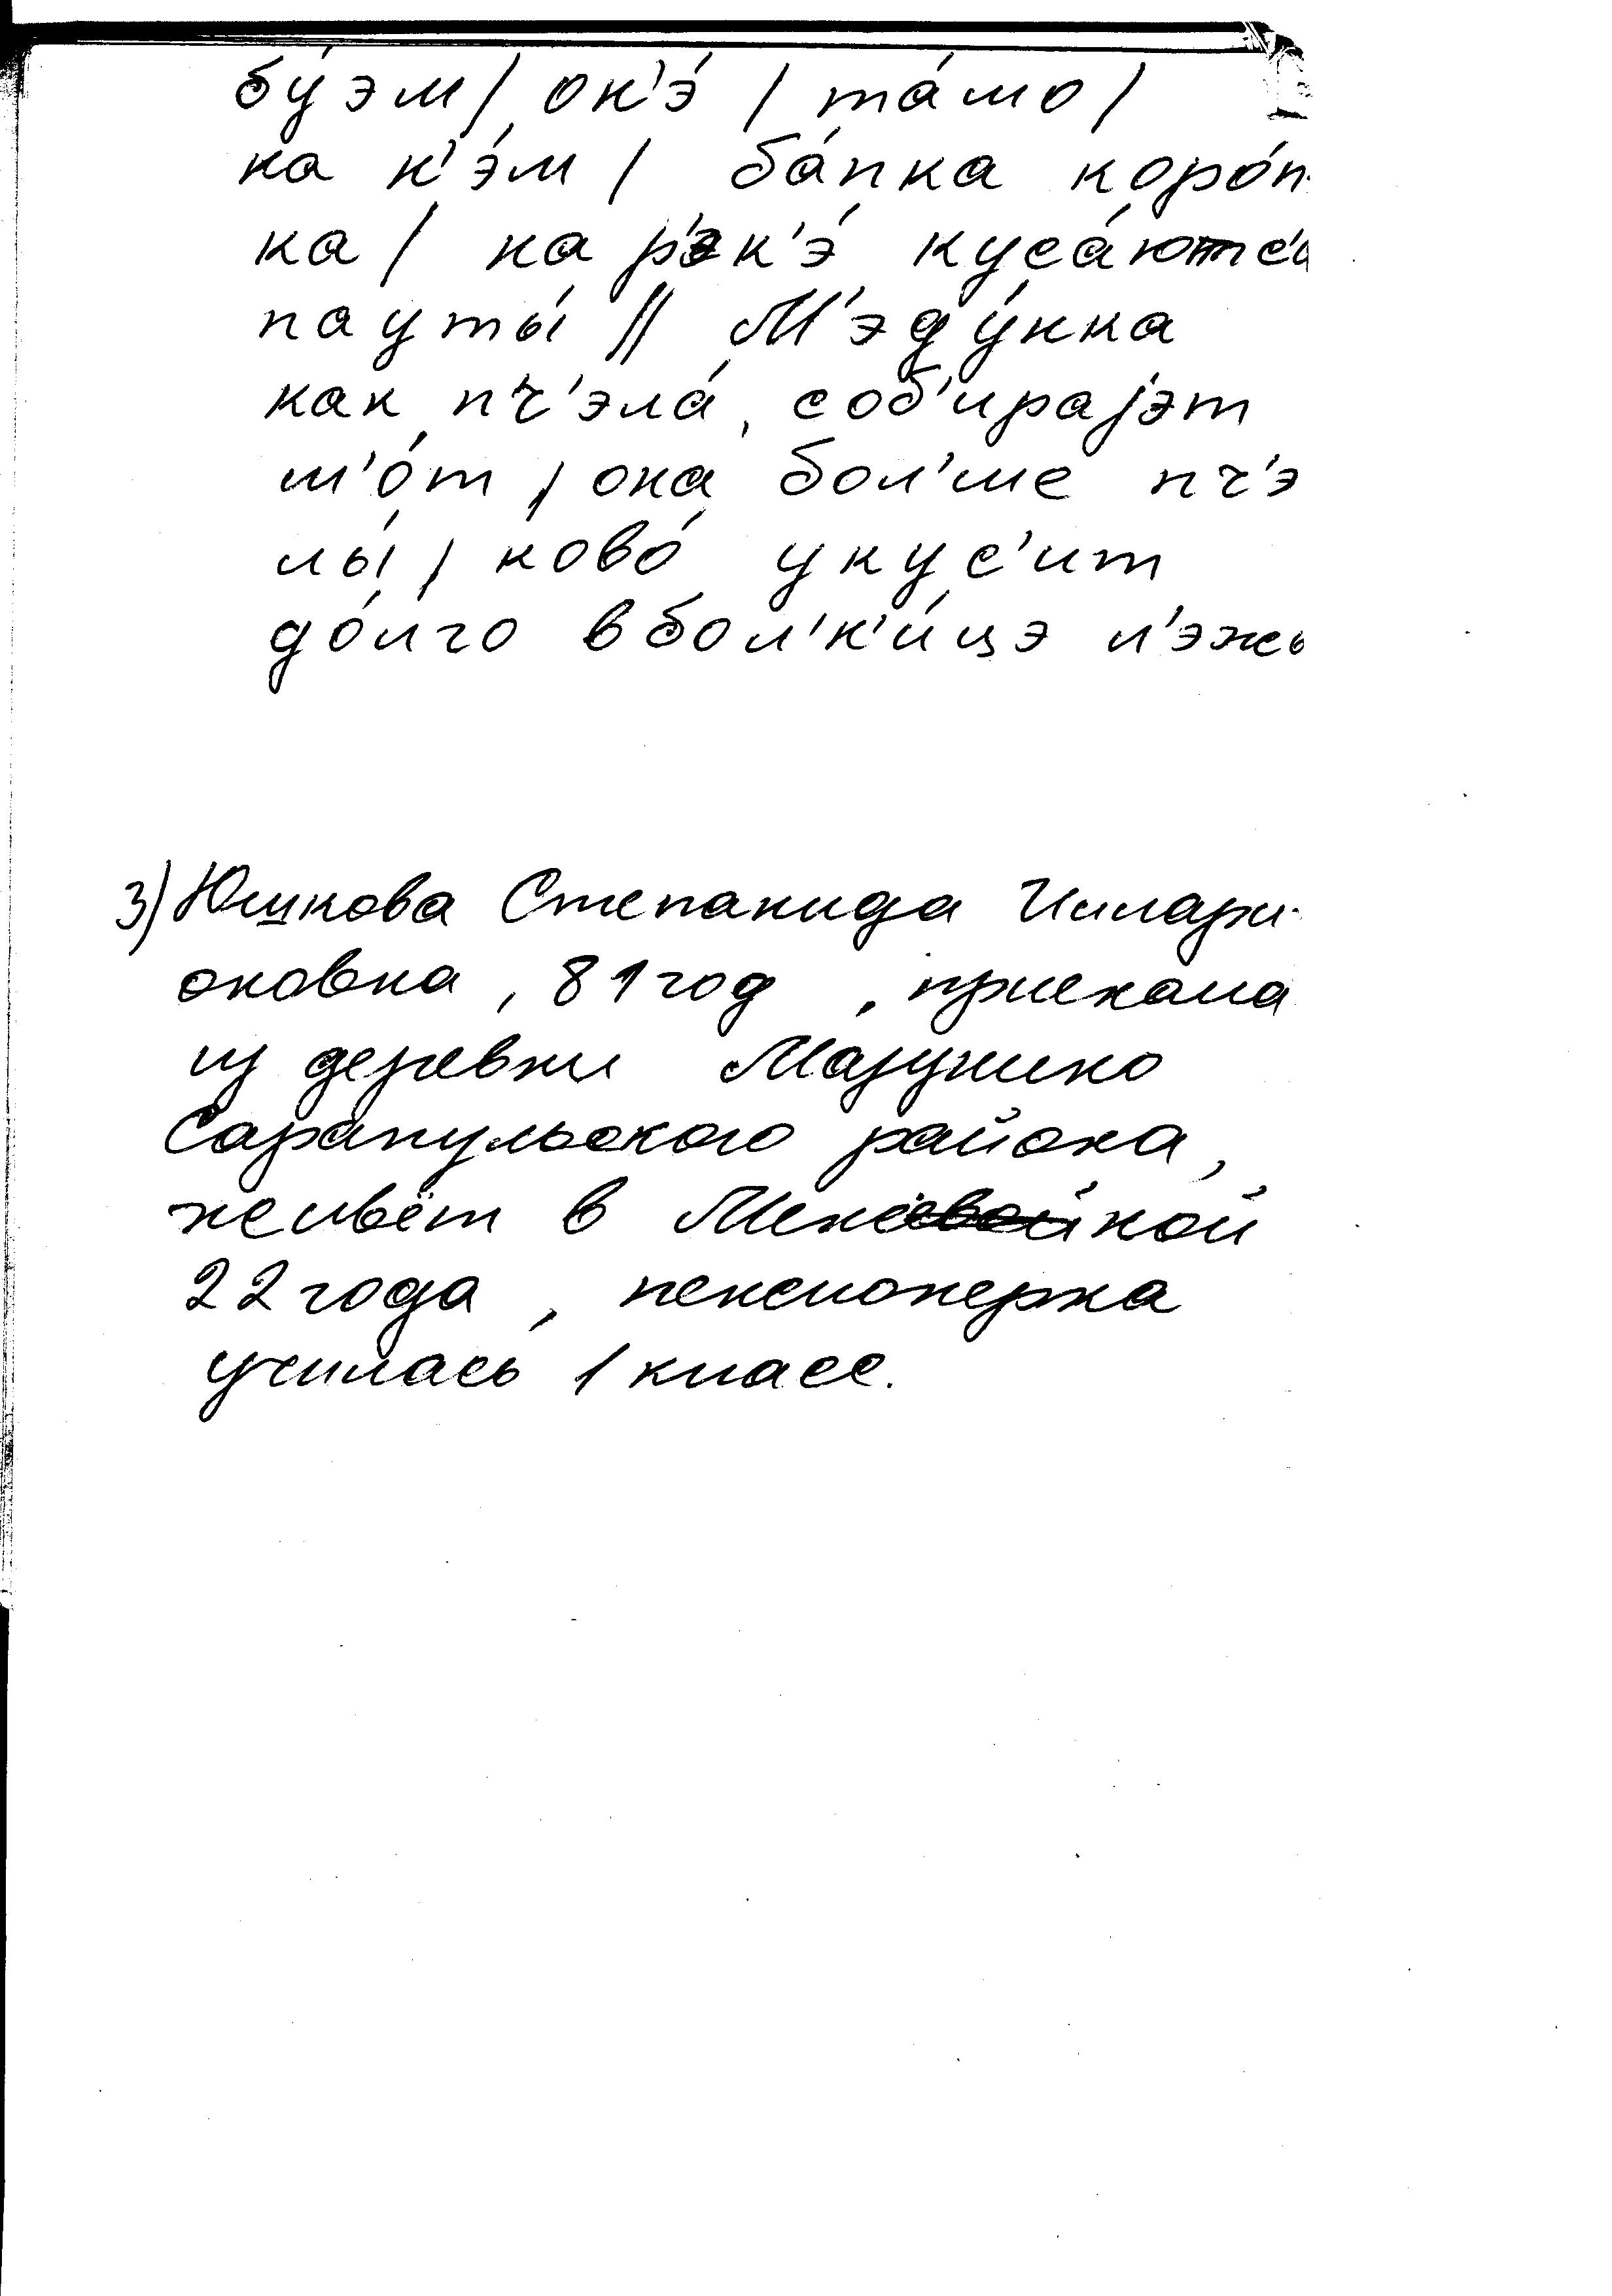 бу́эм / он'э́ / та́мо /
на н'э́м / ба́пка коро́п-
ка / на р'эк'э́ куса́ютс'и
пауты́ // М'эду́нка
как пч'эла́, соб'ирајэт
м'о́т / она́ бол'ше пч'э
лы́ / ково́ укус'ит
до́лго в бол'н'и́цэ л'эжы
3) Юшкова Степанида Иллари-
оновна, 81 год, приехала
из деревни Мазунино
Сарапульского района,
живёт в Меновной
22 года, пенсионерка
училась 1 класс.